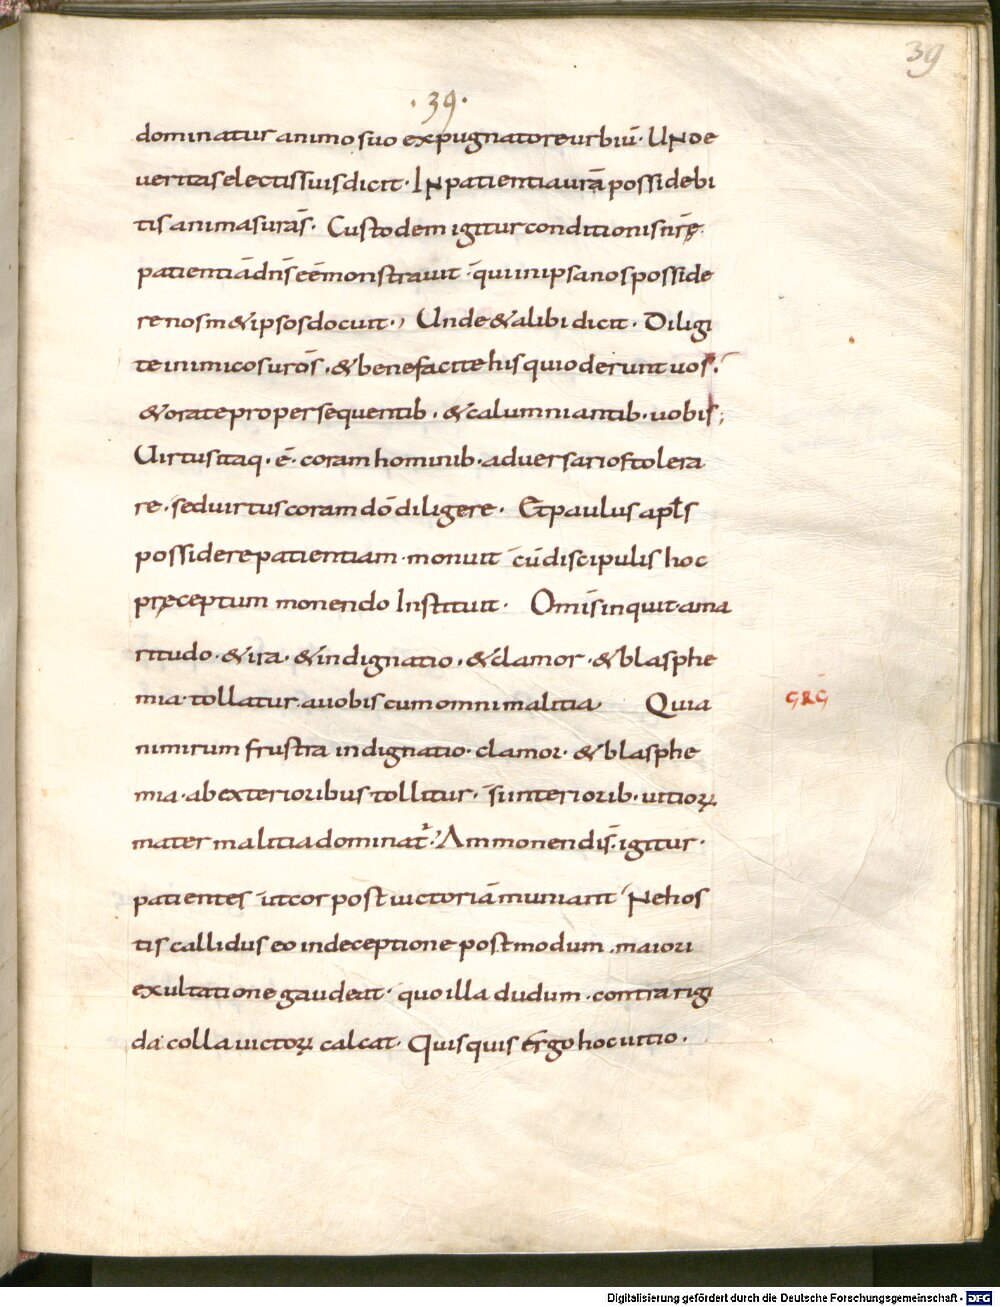 39
·39·
dominatur animo suo expugnatore urbiū· UNde
veritas electis suis dicit· IN patientia urā possidebi
tis animas urās· Custodem igitur conditionis nrę
patientiā dn̄s eē monstravit· qui in ipsa nos posside
re nosm& ipsos docuit· Unde & alibi dicit· Diligi
te inimicos urōs· & benefacite his qui oderunt uos·
& orate pro persequentib· & calumniantib· uobis;
Uirtus itaq· ē· coram hominib· adversarios tolera
re· sed uirtus coram dō diligere· Et paulus apls
possidere patientiam monuit cū discipulis hoc
pręceptum monendo Instituit· Omīs inquit ama
ritudo· & ira· & indignatio· & clamor· & blasphe
mia· tollatur a uobis cum omni malitia· Quia
GRG
nimirum frustra indignatio· clamor· & blasphe
mia· ab exterioribus tollitur· si interiorib· uitioꝝ
mater malitia dominat· Ammonendi s· igitur·
patientes ut cor post uictoriā muniant Ne hos
tis callidus eo in deceptione postmodum· maiori
exultatione gaudeat· quo illa dudum· contra rigi
da colla uictoꝝ calcat· Quisquis ergo hoc uitio·
Digitalisierung gefördert durch die Deutsche Forschungsgemeinschaft - DFG